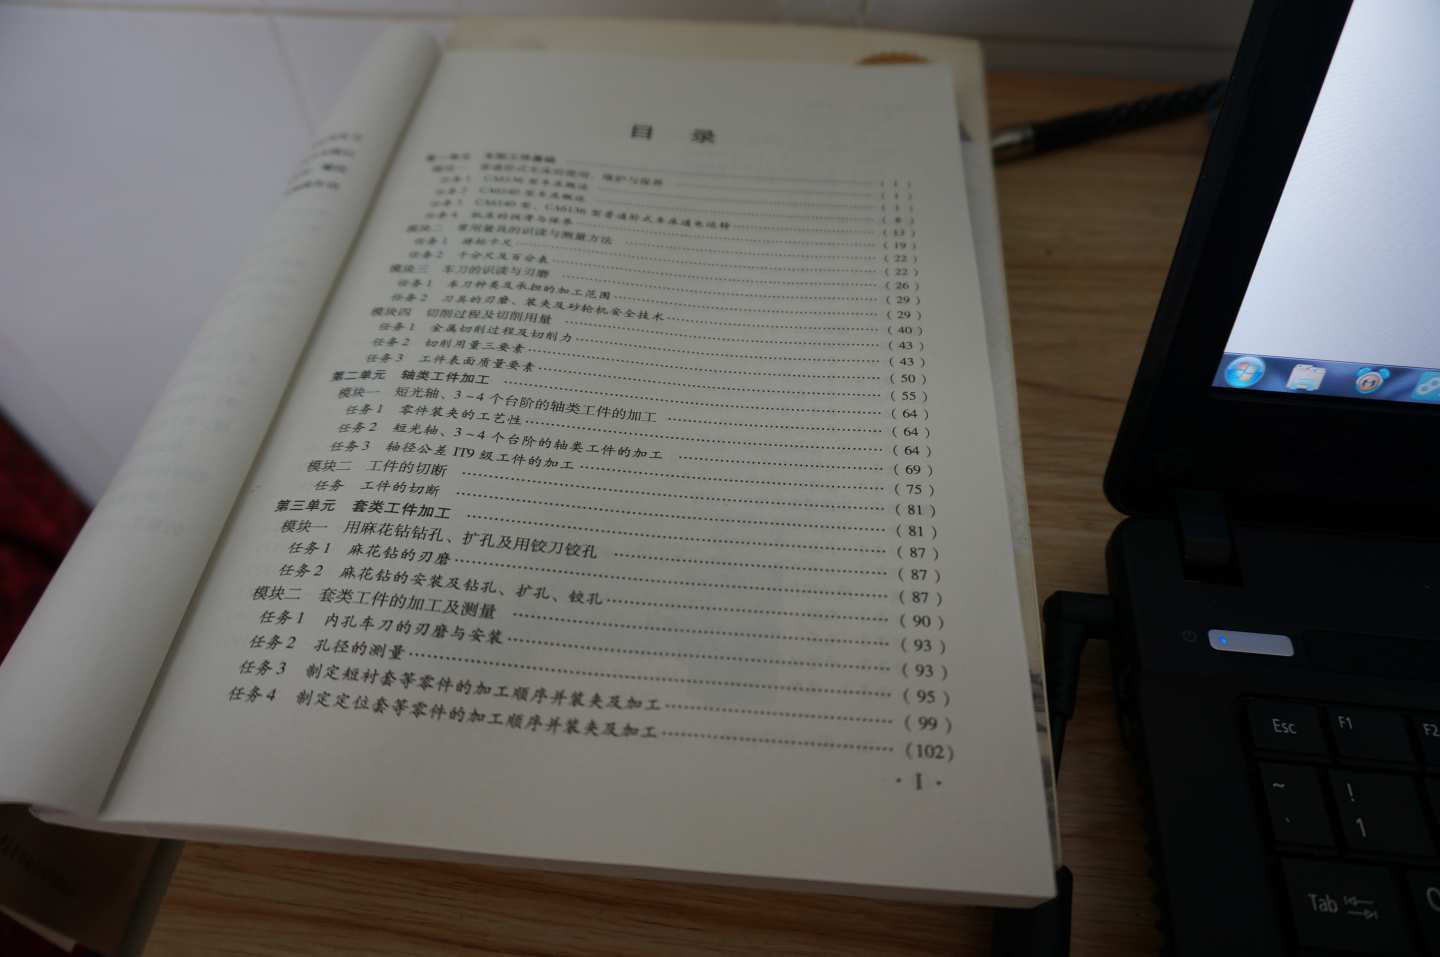 目 录
第一单元 车削工件基础 ( 1 )
模块一 普通卧式车床的使用、维护与保养 ( 1 )
任务1 CA6136 型车床概述 ( 1 )
任务2 CA6140 型车床概述 ( 8 )
任务3 CA6140 型、CA6136 型普通卧式车床通电运转 ( 13 )
任务4 机床的润滑与保养 ( 19 )
模块二 常用量具的识读与测量方法 ( 22 )
任务1 游标卡尺 ( 22 )
任务2 千分尺及百分表 ( 26 )
模块三 车刀的识读与刃磨 ( 29 )
任务1 车刀种类及承担的加工范围 ( 29 )
任务2 刀具的刃磨、装夹及砂轮机安全技术 ( 40 )
模块四 切削过程及切削用量 ( 43 )
任务1 金属切削过程及切削力 ( 43 )
任务2 切削用量三要素 ( 50 )
任务3 工件表面质量要素 ( 55 )
第二单元 轴类工件加工 ( 64 )
模块一 短光轴、3~4 个台阶的轴类工件的加工 ( 64 )
任务1 零件装夹的工艺性 ( 64 )
任务2 短光轴、3~4 个台阶的轴类工件的加工 ( 69 )
任务3 轴径公差 IT9 级工件的加工 ( 75 )
模块二 工件的切断 ( 81 )
任务 工件的切断 ( 81 )
第三单元 套类工件加工 ( 87 )
模块一 用麻花钻钻孔、扩孔及用铰刀铰孔 ( 87 )
任务1 麻花钻的刃磨 ( 87 )
任务2 麻花钻的安装及钻孔、扩孔、铰孔 ( 90 )
模块二 套类工件的加工及测量 ( 93 )
任务1 内孔车刀的刃磨与安装 ( 93 )
任务2 孔径的测量 ( 95 )
任务3 制定短衬套等零件的加工顺序并装夹及加工 ( 99 )
任务4 制定定位套等零件的加工顺序并装夹及加工 (102)
· I ·
Esc F1 F2
~ ! 1
Tab